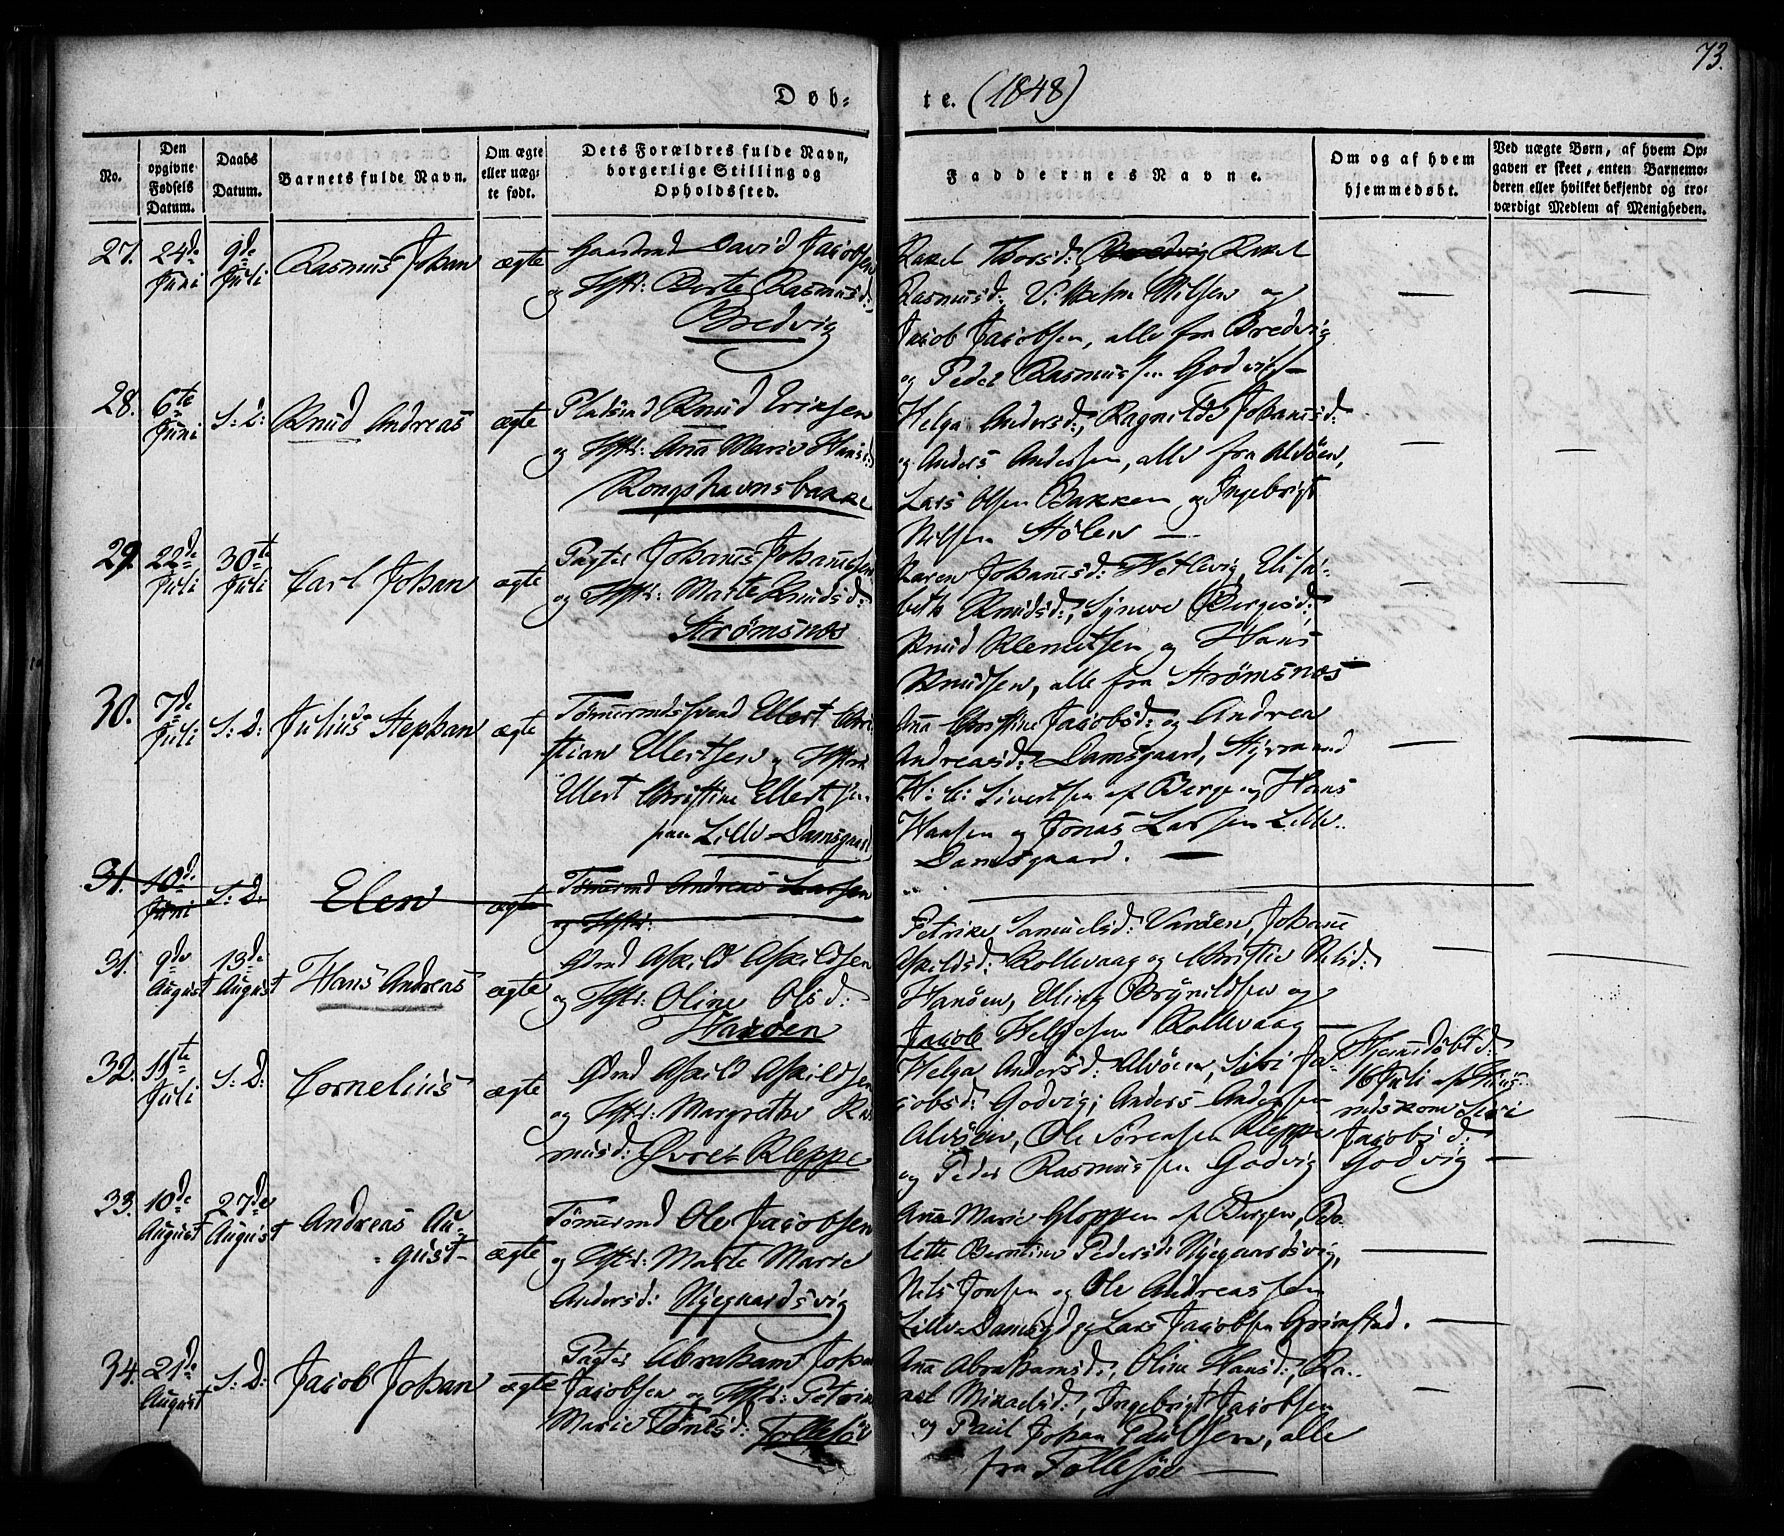 73.
Døb-
te. (1848)
No.
Den opgivne Fødsels Datum.
Daabs Datum.
Barnets fulde Navn.
Om ægte eller uægte født.
Dets Forældres fulde Navn, borgerlige Stilling og Opholdssted.
Faddernes Navne.
Om og af hvem hjemmedøbt.
Ved uægte Børn, af hvem Opgaven er skeet, enten Barnemoderen eller hvilket bekjendt og troværdigt Medlem af Menigheden.
27. 24de Juni 9de Juli Rasmus Johan ægte
Gaardmd David Jacobsen
og Hstr: Berte Rasmusd:
Bredvig
Rakel Thorsd: Bredvig Rakel
Rasmusd: Vilhelm Nilsen og
Jacob Jacobsen, alle fra Bredvig
og Peder Rasmussen Godvig —
28. 6te Juni S: D: Knud Andreas ægte
Pladsmd Knud Ericksen
og Hstr: Ana Marie Hansd:
Kongshavnsbakke
Helga Andersd:, Ragnilde Johannsd:
og Anders Andersen, alle fra Alvøen,
Lars Olsen Bakken og Ingebrigt
Nilsen Stølen —
29. 22de Juli 30te Juli Carl Johan ægte
Pagter Johanes Johanesen
og Hstr: Marte Knudsd:
Strømsnæs
Karen Johannsd: Hetlevig, Elisa-
beth Knudsd:, Syneve Børgesd:
Knud Klemetsen og Hans
Knudsen, alle fra Strømsnæs —
30. 7de Juli S: D: Julius Stephan ægte
Tømermdssvend Ellert Chri-
stian Ellertsen og Hstr:
Ellert Christine Ellertsen
paa Lille Damsgaard
Ana Christine Jacobsd: og Andrea
Andreasd: Damsgaard, Styrmand
H: C: Sivertsen af Bergen, Hans
Hansen og Jonas Larsen Lille
Damsgaard. —
31. 10de Juni S: D: Elen ægte
Tømermd Andreas Larsen
og Hstr:
31. 9de August 13de August Hans Andreas ægte
Gdmd Askild Askildsen
og Hstr: Oline Olsd:
Hanøen
Petrike Samuelsd: Varøen, Johane
Askildsd: Rollevaag og Christie Nilsd:
Hanøen, Elling Brynildsen og
Jacob Helgesen Rollevaag —
32. 11te Juli S: D: Cornelius ægte
Gdmd Askild Askildsen
og Hstr: Margrethe Ras-
musd: Øvre Kleppe
Helga Andersd: Alvøen, Siri Ja-
cobsd: Godvig; Anders Andersen
Alvøen, Ole Sørensen Kleppe
og Peder Rasmussen Godvig
Hjemdøbt d:
16 Juli af
Siri
Jacobsd:
Godvig —
33. 10de August 27de August Andreas Au-
gust ægte
Tømermd Ole Jacobsen
og Hstr: Marte Marie
Andersd: Nygaardsvig
Ana Marie Gloppen af Bergen, Bo-
lette Berntine Pedersd: Nygaardsvig,
Nils Jonsen og Ole Andreassen
Lille Damsgd og Lars Jacobsen Grimstad. —
34. 21de August S: D: Jacob Johan ægte
Pagter Abraham Johan
Jacobsen og Hstr: Petrine
Marie Tønesd: Tollesøe
Ana Abrahamsd:, Oline Hansd:, Ra-
kel Mikaelsd:, Ingebrigt Jacobsen
og Paul Johan Paulsen, alle
fra Tollesøe —